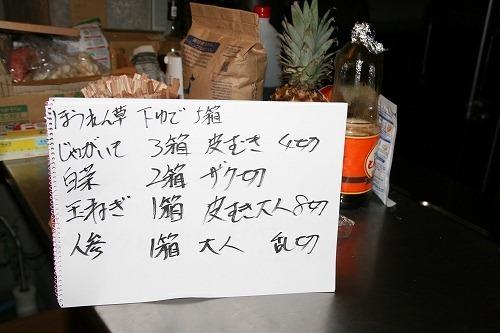 ほうれん草 下ゆで 5箱
じゃがいも 3箱 皮むき 4切
白菜 2箱 ザク切
玉ねぎ 1箱 皮むき 大人8切
人参 1箱 大人 乱切